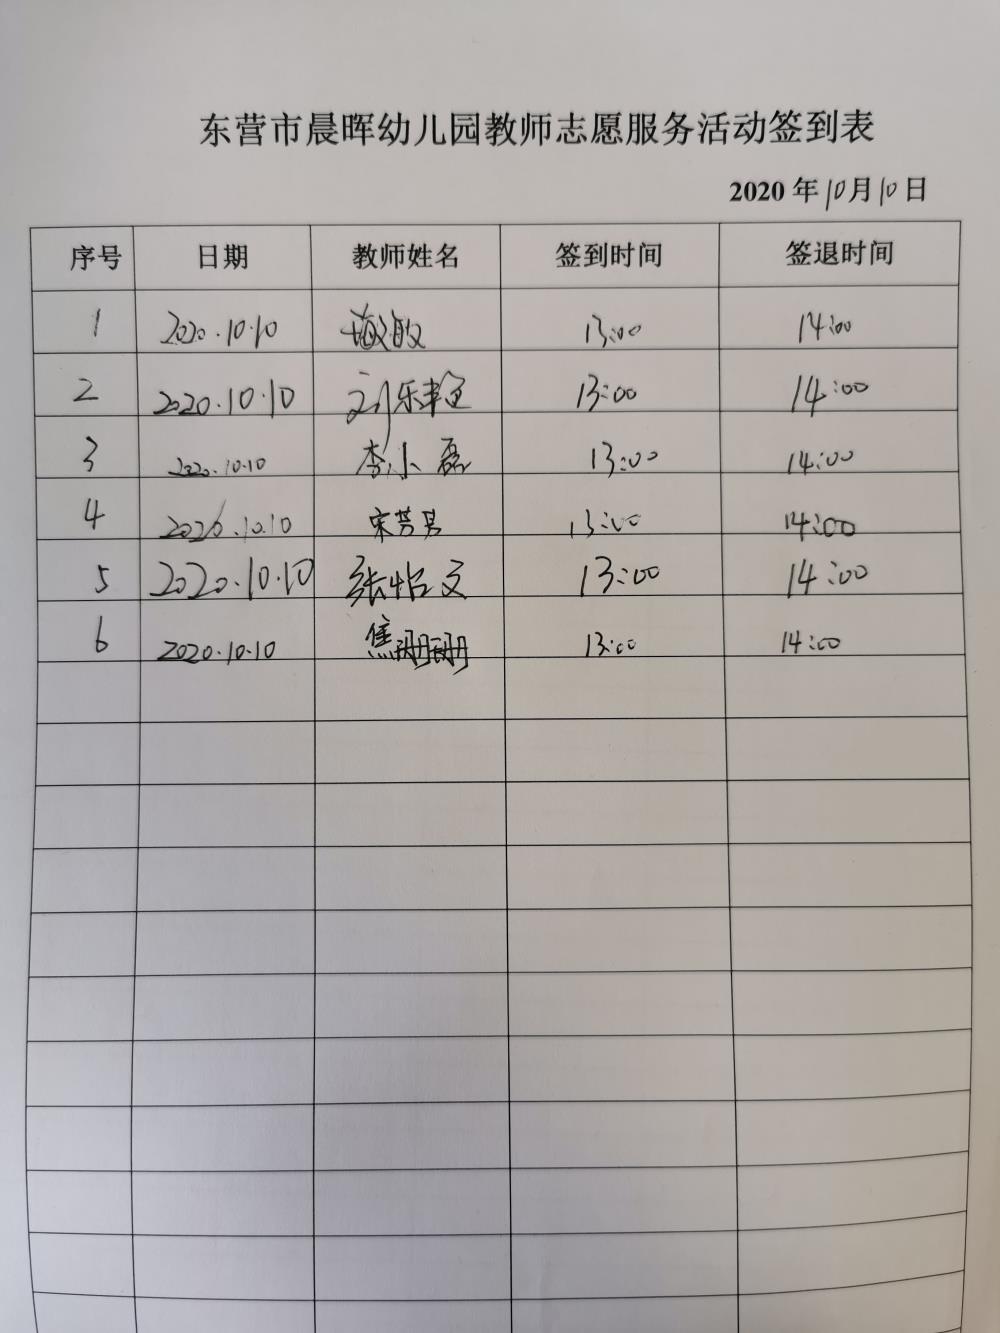 东营市晨晖幼儿园教师志愿服务活动签到表
2020 年 10 月 10 日
序号 日期 教师姓名 签到时间 签退时间
1 2020.10.10 13:00 14:00
2 2020.10.10 刘乐 13:00 14:00
3 2020.10.10 李小磊 13:00 14:00
4 2020.10.10 宋芳男 13:00 14:00
5 2020.10.10 张怡文 13:00 14:00
6 2020.10.10 焦珊珊 13:00 14:00